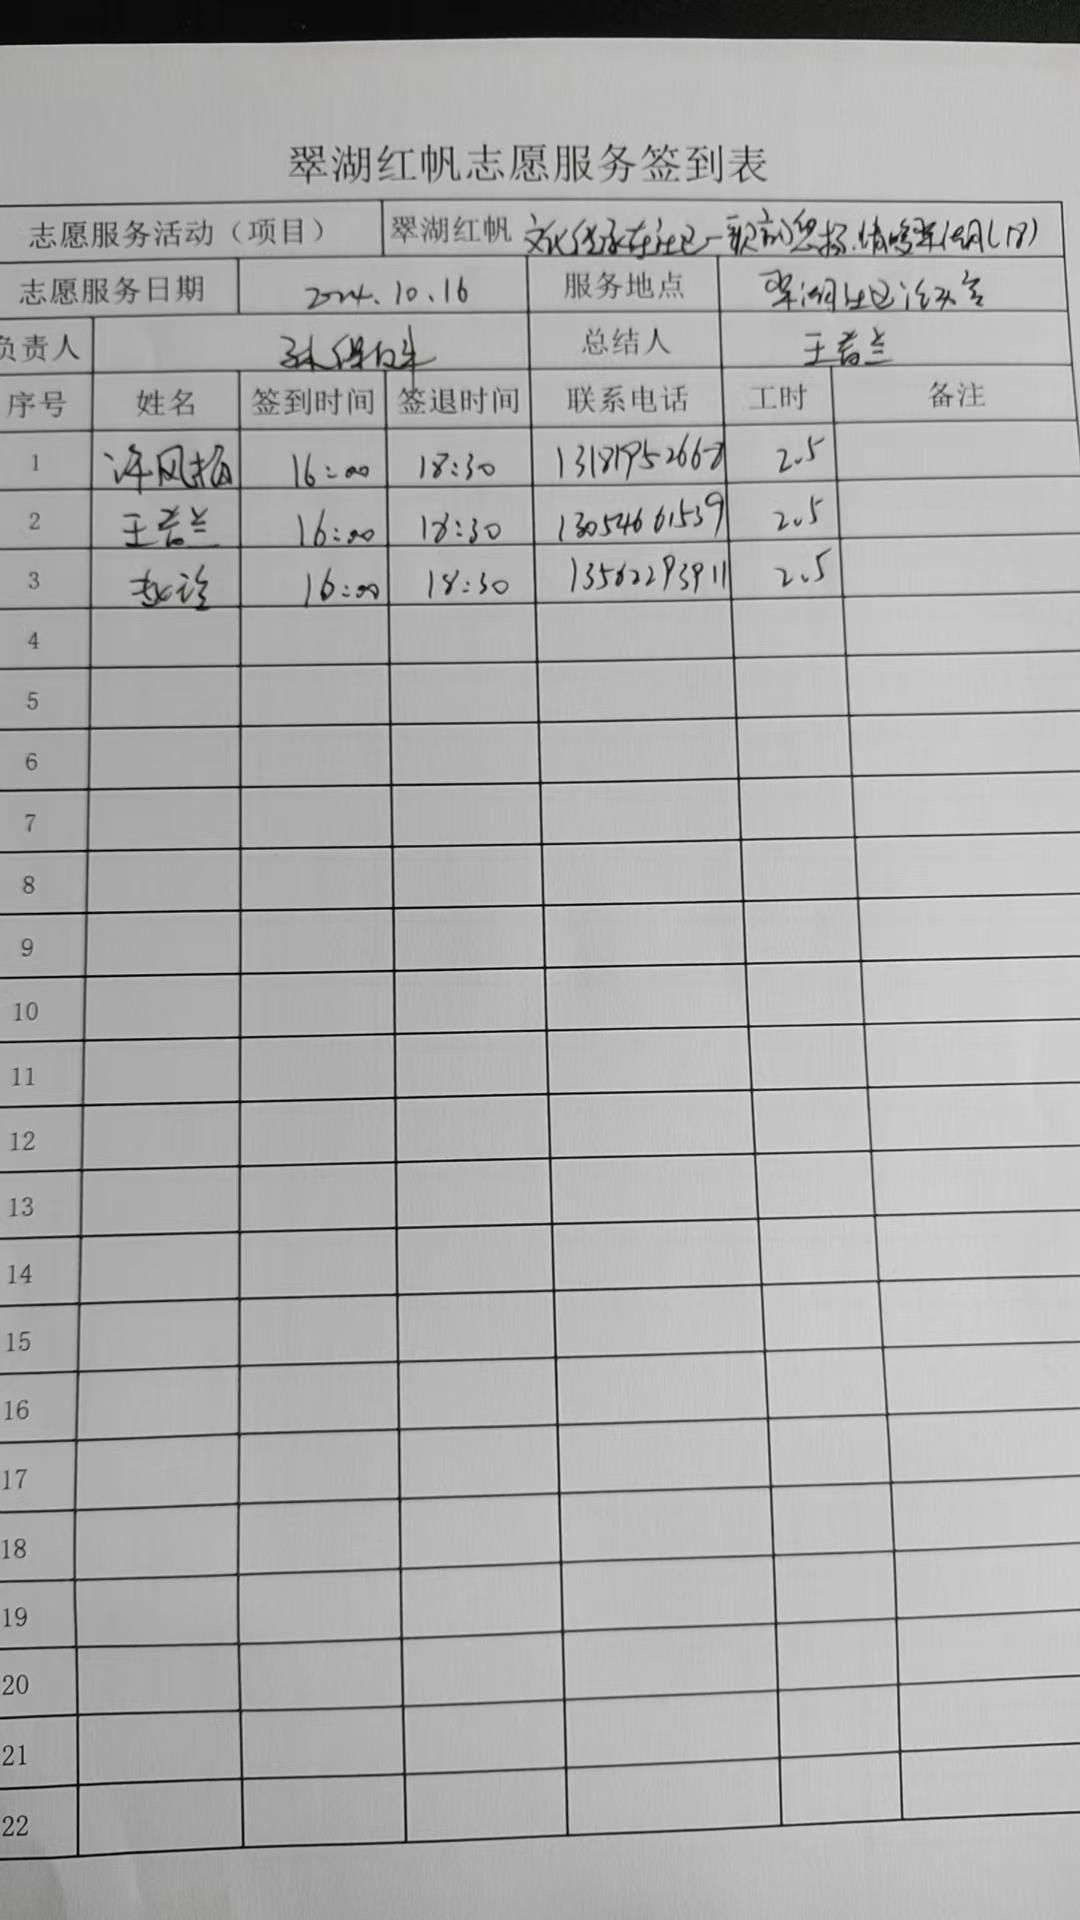 翠湖红帆志愿服务签到表
志愿服务活动（项目） 翠湖红帆 文化传承在社区一歌声 扬.情 (18)
志愿服务日期 2024.10.16 服务地点 翠湖社区活动室
负责人 总结人 王若兰
序号 姓名 签到时间 签退时间 联系电话 工时 备注
1 许风梅 16:00 18:30 13181952668 2.5
2 王若兰 16:00 18:30 13054661539 2.5
3 赵 16:00 18:30 13562293911 2.5
4
5
6
7
8
9
10
11
12
13
14
15
16
17
18
19
20
21
22